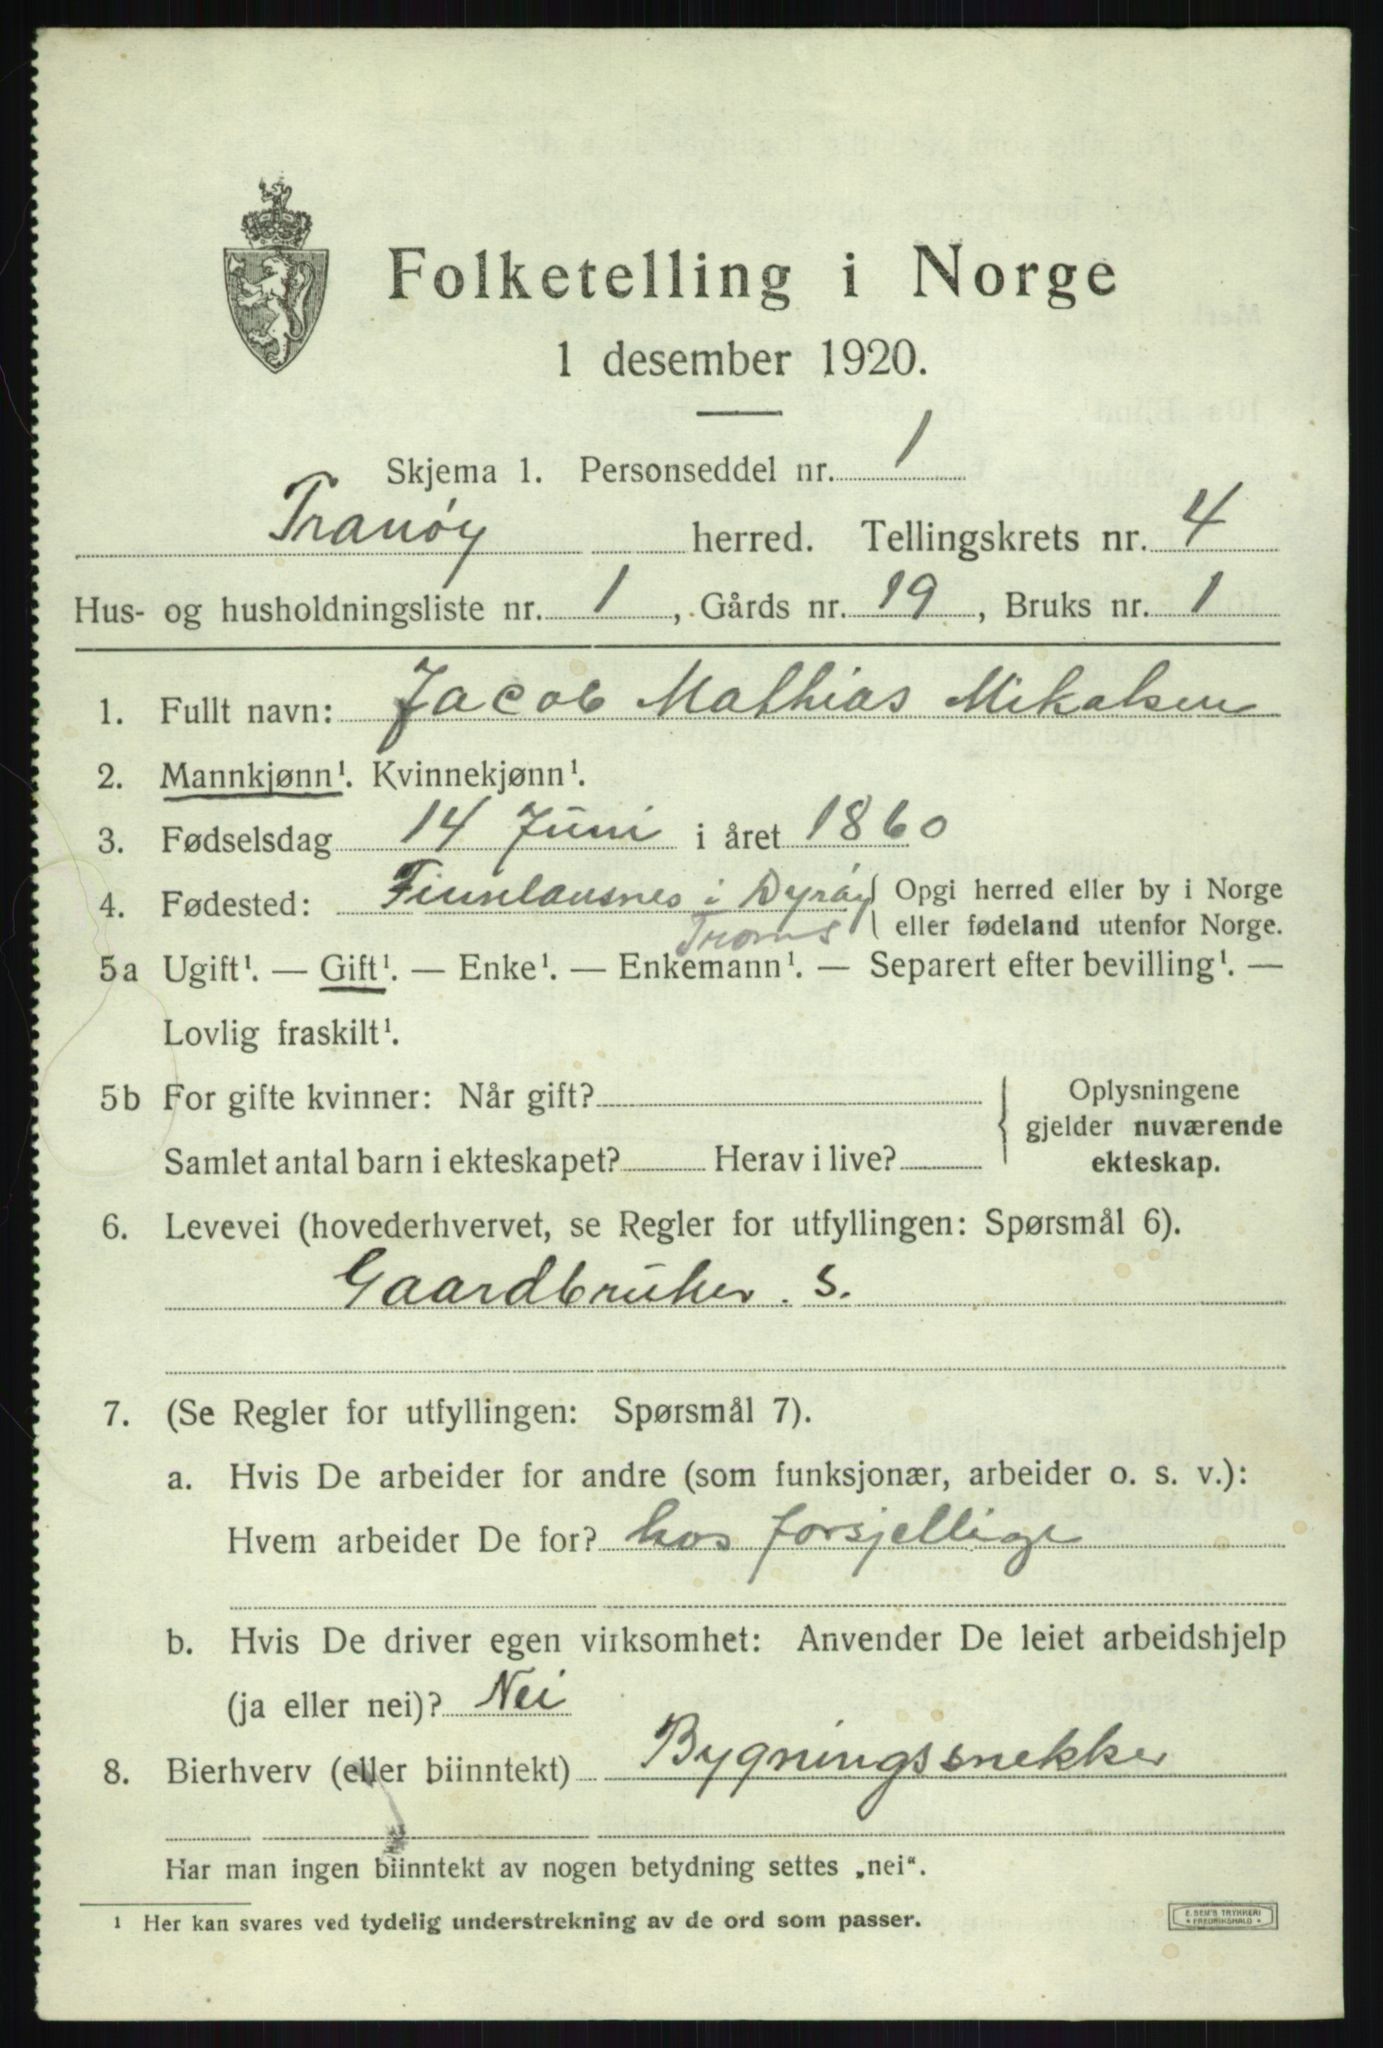 Folketelling i Norge
1 desember 1920.
Skjema 1. Personseddel nr. 1
Tranøy herred. Tellingskrets nr. 4
Hus- og husholdningsliste nr. 1, Gårds nr. 19, Bruks nr. 1
1. Fullt navn: Jacob Mathias Mikalsen
2. Mannkjønn¹. Kvinnekjønn¹.
3. Fødselsdag 14 Juni i året 1860
4. Fødested: Finnlansnes i Dyrøy { Opgi herred eller by i Norge
Troms eller fødeland utenfor Norge.
5a Ugift¹. — Gift¹. — Enke¹. — Enkemann¹. — Separert efter bevilling¹. —
Lovlig fraskilt¹.
5b For gifte kvinner: Når gift? { Oplysningene
gjelder nuværende
Samlet antal barn i ekteskapet? Herav i live? ekteskap.
6. Levevei (hovederhvervet, se Regler for utfyllingen: Spørsmål 6).
Gaardbruker. S.
7. (Se Regler for utfyllingen: Spørsmål 7).
a. Hvis De arbeider for andre (som funksjonær, arbeider o. s. v.):
Hvem arbeider De for? hos forsjellige
b. Hvis De driver egen virksomhet: Anvender De leiet arbeidshjelp
(ja eller nei)? Nei
8. Bierhverv (eller biinntekt) Bygningssnekker
Har man ingen biinntekt av nogen betydning settes „nei".
¹ Her kan svares ved tydelig understrekning av de ord som passer.
E. SEM'S TRYKKERI
* FREDRIKSHALD *